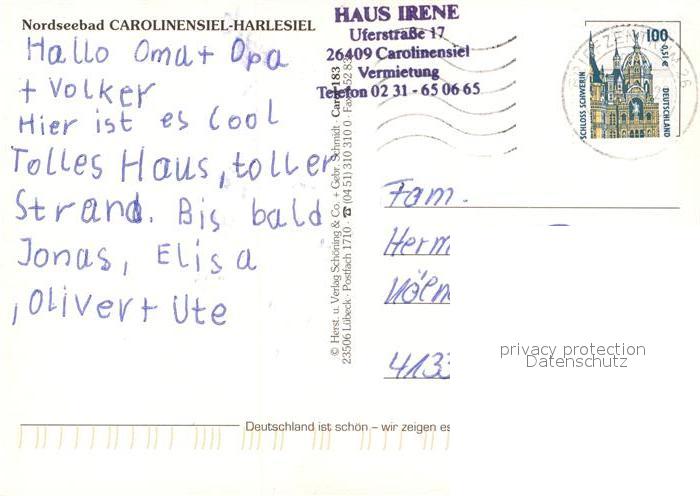 Nordseebad CAROLINENSIEL-HARLESIEL
Hallo Oma + Opa
+ Volker
Hier ist es Cool
Tolles Haus, toller
Strand. Bis bald
Jonas, Elisa
, Oliver + Ute
HAUS IRENE
Uferstraße 17
26409 Carolinensiel
Vermietung
Telefon 02 31 - 65 06 65
© Herst. u. Verlag Schöning & Co. + Gebr. Schmidt
23506 Lübeck · Postfach 1710 · ☎ (04 51) 310 310 0 ·
100
0,51 €
SCHLOSS SCHWERIN
DEUTSCHLAND
Fam.
Herm
Köln
4133
privacy protection
Datenschutz
Deutschland ist schön – wir zeigen es